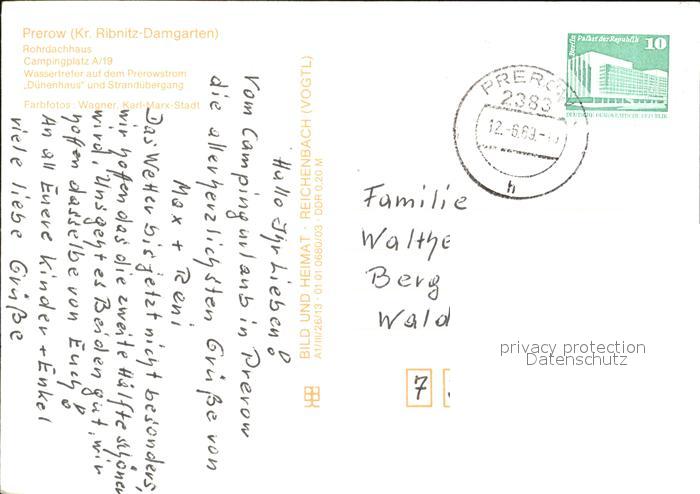 Prerow (Kr. Ribnitz-Damgarten)
Rohrdachhaus
Campingplatz A/19
Wassertreter auf dem Prerowstrom
„Dünenhaus" und Strandübergang
Farbfotos: Wagner, Karl-Marx-Stadt
Hallo Ihr Lieben!
Vom Campingurlaub in Prerow
die allerherzlichsten Grüße von
Max + Reni
Das Wetter bis jetzt nicht besonders,
wir hoffen das die zweite Hälfte schöner
wird. Uns geht es Beiden gut, wir
hoffen dasselbe von Euch!
An all Euere Kinder + Enkel
viele liebe Grüße
BILD UND HEIMAT · REICHENBACH (VOGTL)
A1/III/26/13 · 01 01 0680/03 · DDR 0,20 M
Berlin Palast der Republik
10
DEUTSCHE DEMOKRATISCHE REPUBLIK
PREROW
2383
12.-6.89.-
h
Familie
Walthe
Berg
Wald
7
privacy protection
Datenschutz